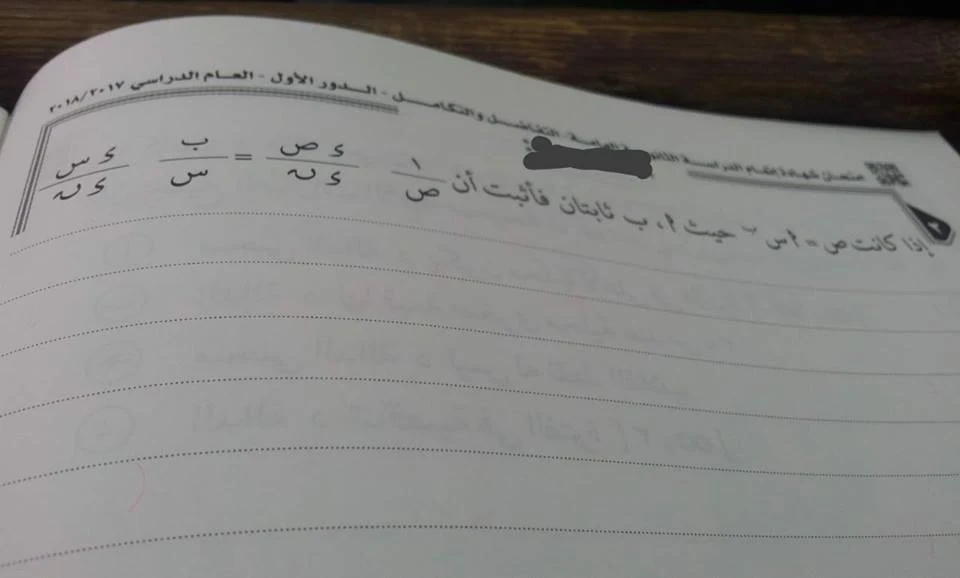 امتحان شهادة إتمام الدراسة الثانوية العامة - التفاضل والتكامل - الدور الأول - العام الدراسي ٢٠١٨/٢٠١٧
إذا كانت ص = ٢ س ب حيث ٢ ، ب ثابتان فأثبت أن ١/ص ء ص/ء ن = ب/س ء س/ء ن